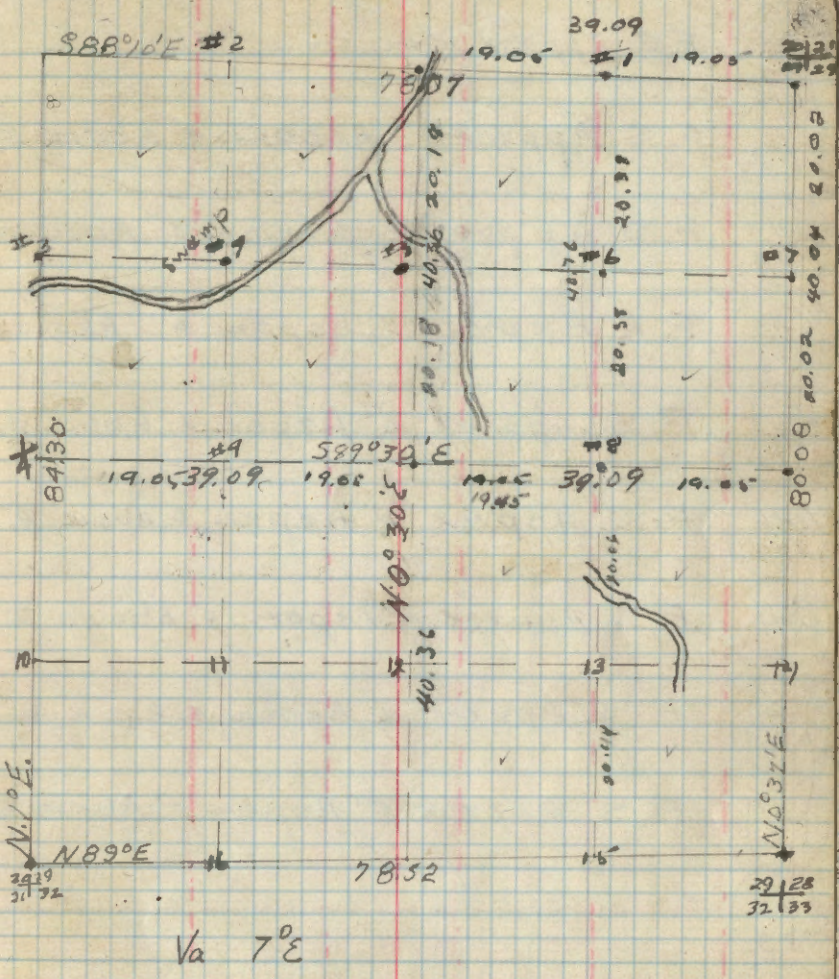 39.09
S88°10'E #2
19.05 #1 19.05
78.07
20.18
20.38
20.02
swamp
#3
40.36
#6
40.76
40.04
20.18
20.38
20.02
84.30
#9
S89°30'E
#8
80.08
19.05 39.09 19.05
39.09 19.05
19.05
N0°30'E
40.36
10 11 12 13
N.1°E.
N0°37'E
N89°E 16 78.52 15
31 32
29 28
32 33
Va 7°E